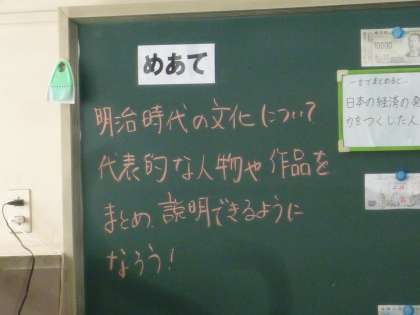 めあて
明治時代の文化について
代表的な人物や作品を
まとめ、説明できるように
なろう!
一言でまとめると…
日本の経済の発
力をつくした人
10000